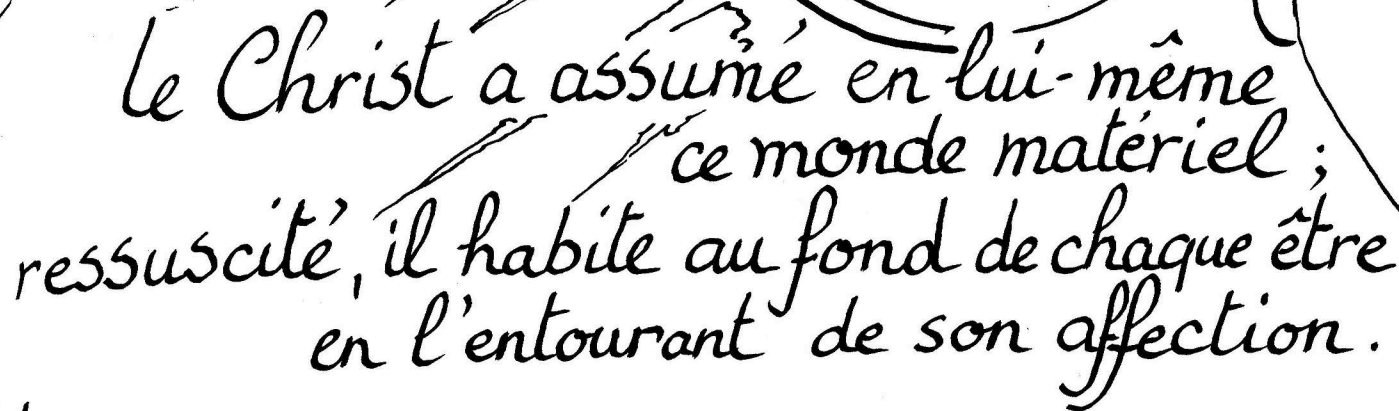 le Christ a assumé en lui-même
ce monde matériel ;
ressuscité, il habite au fond de chaque être
en l'entourant de son affection.